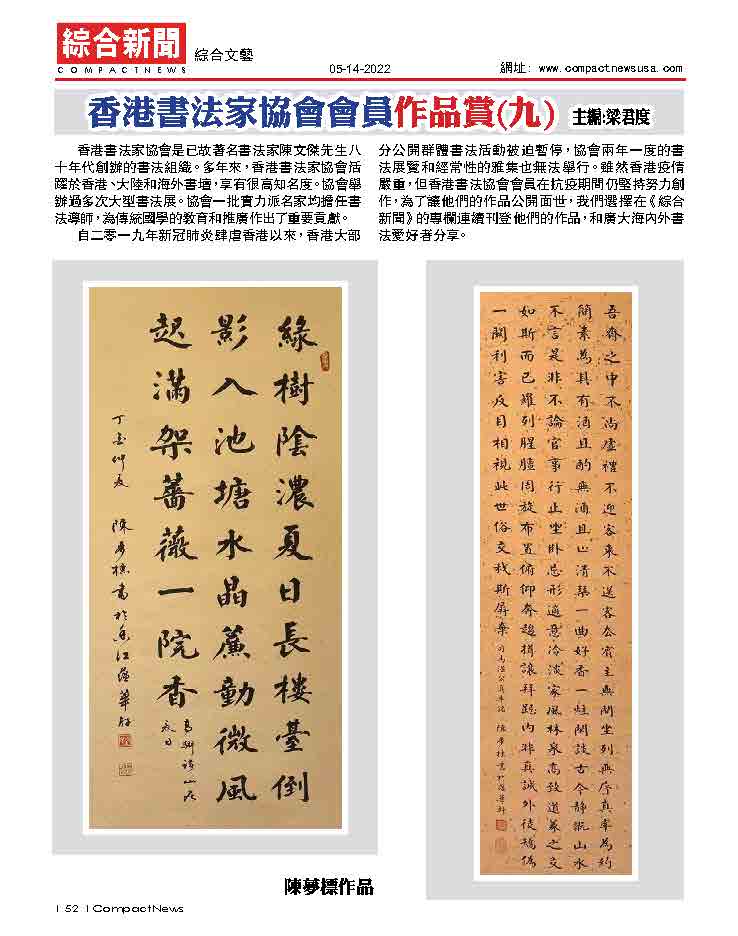 綜合新聞
COMPACTNEWS
綜合文藝
05-14-2022
網址: www.compactnewsusa.com
香港書法家協會會員作品賞(九) 主編:梁君度
香港書法家協會是已故著名書法家陳文傑先生八
十年代創辦的書法組織。多年來，香港書法家協會活
躍於香港、大陸和海外書壇，享有很高知名度。協會舉
辦過多次大型書法展。協會一批實力派名家均擔任書
法導師，為傳統國學的教育和推廣作出了重要貢獻。
自二零一九年新冠肺炎肆虐香港以來，香港大部
分公開群體書法活動被迫暫停，協會兩年一度的書
法展覽和經常性的雅集也無法舉行。雖然香港疫情
嚴重，但香港書法協會會員在抗疫期間仍堅持努力創
作，為了讓他們的作品公開面世，我們選擇在《綜合
新聞》的專欄連續刊登他們的作品，和廣大海內外書
法愛好者分享。
綠樹陰濃夏日長樓臺倒
影入池塘水晶簾動微風
起滿架薔薇一院香
高駢詩山居
夏日
丁酉仲夏 陳夢標書於香江蘊華軒
吾齋之中不尚虛禮不迎客來不送客去賓主無間坐列無序真率為約
簡素為具有酒且酌無酒且止清琴一曲好香一炷閑談古今靜玩山水
不言是非不論官事行止坐臥忘形適意冷淡家風林泉高致道義之交
如斯而已羅列腥膻周旋布置俯仰奔趨揖讓拜跽內非真誠外徒矯偽
一關利害反目相視此世俗交我斯屏棄 司馬溫公真率銘 陳夢標書於蘊華軒
陳夢標作品
| 52 | CompactNews